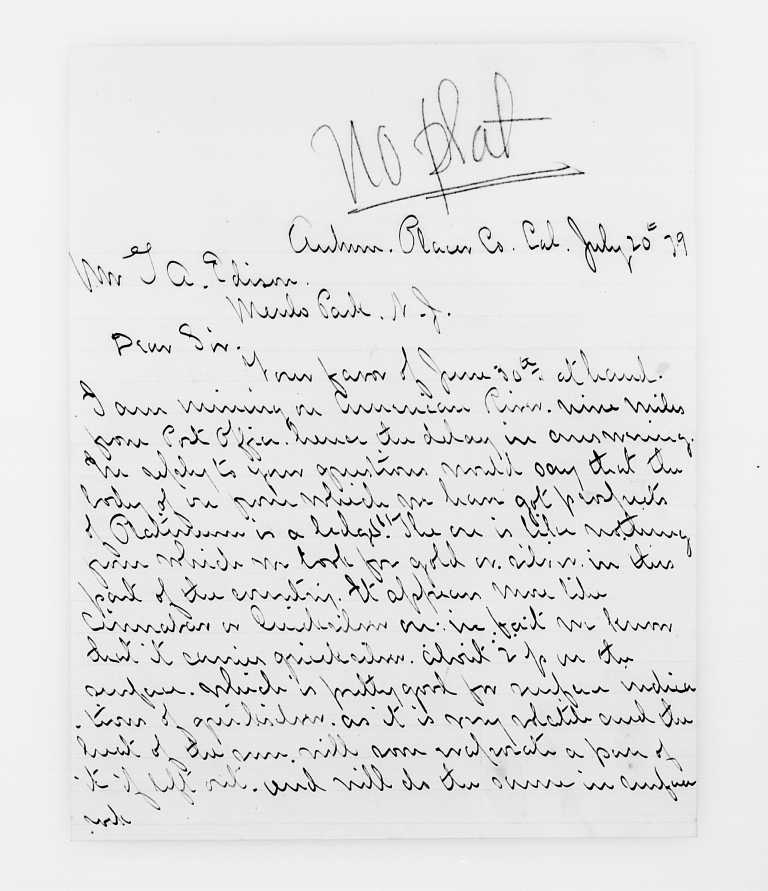 No plat
Auburn. Placer Co. Cal. July 20" 79
Mr T A. Edison.
Menlo Park. N. J.
Dear Sir.
Your favor of June 30th. at hand.
I am mining on American River. nine miles
from Post Office. hence the delay in answering.
In reply to your questions would say that the
body of ore from which we have got prospects
of Platinum is a ledge. The ore is like nothing
from which we look for gold or silver. in this
part of the country. It appears more like
Cinnabar or Quicksilver ore. in fact we know
that it carries quicksilver. about 2 p on the
surface. which is pretty good for surface indica
tions of quicksilver. as it is very volatile and the
heat of the sun. will soon evaporate a pan of
it if left out. and will do the same in surface
rock